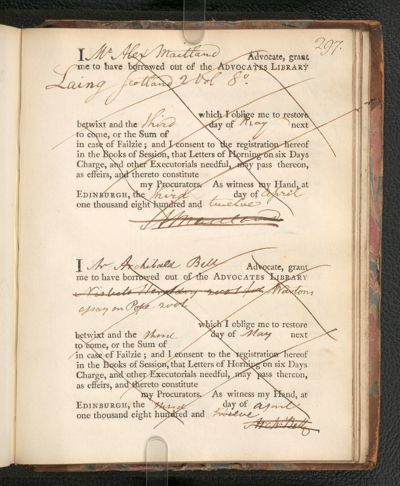 297.
I Mr Alex Maitland Advocate, grant
me to have borrowed out of the ADVOCATES LIBRARY
Laing Scotland 2 Vol 8o
which I oblige me to restore
betwixt and the third day of May next
to come, or the Sum of
in case of Failzie; and I consent to the registration hereof
in the Books of Session, that Letters of Horning on six Days
Charge, and other Executorials needful, may pass thereon,
as effeirs, and thereto constitute
my Procurators. As witness my Hand, at
EDINBURGH, the third day of April
one thousand eight hundred and twelve
A Maitland
I Mr Archibald Bell Advocate, grant
me to have borrowed out of the ADVOCATES LIBRARY
Nisbets Heraldry 2 vols Wartons
essay on Pope 2 vols
which I oblige me to restore
betwixt and the third day of May next
to come, or the Sum of
in case of Failzie; and I consent to the registration hereof
in the Books of Session, that Letters of Horning on six Days
Charge, and other Executorials needful, may pass thereon,
as effeirs, and thereto constitute
my Procurators. As witness my Hand, at
EDINBURGH, the third day of April
one thousand eight hundred and twelve
Arch Bell